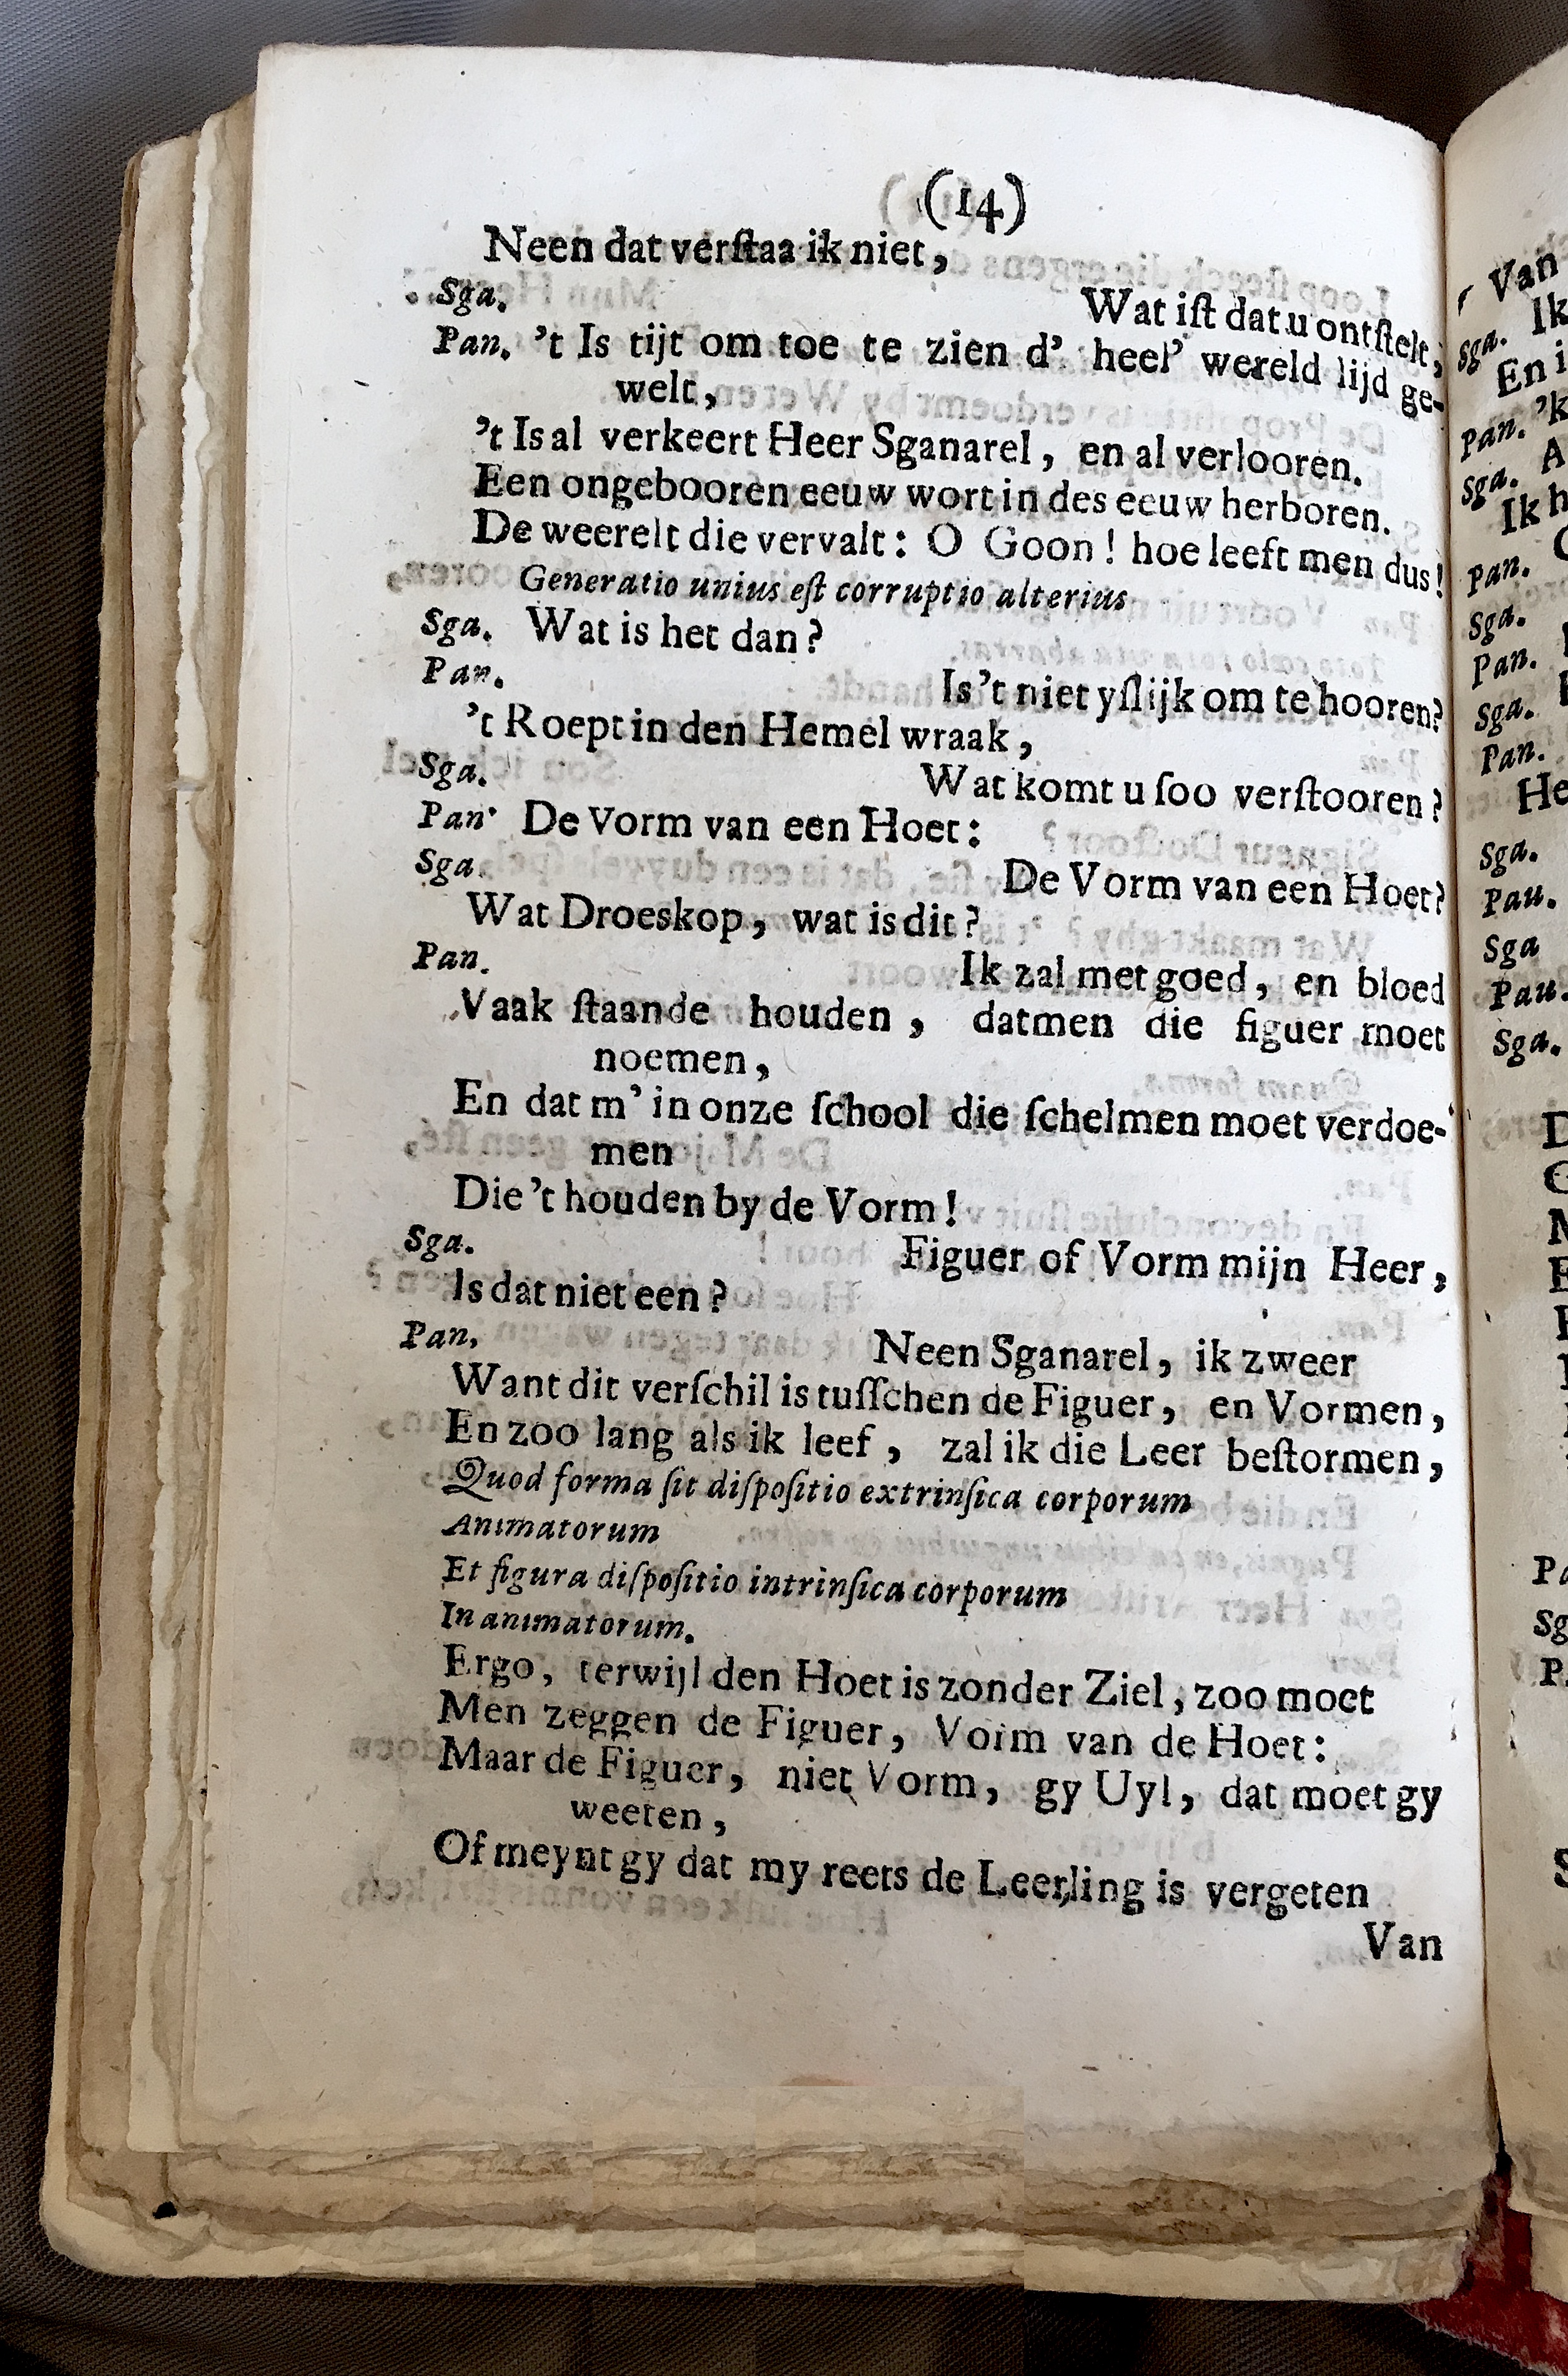 (14)
Neen dat verſtaa ik niet,
Sga. Wat iſt dat u ontſtelt,
Pan. 't Is tijt om toe te zien d' heel' wereld lijd ge-
welt,
't Is al verkeert Heer Sganarel, en al verlooren.
Een ongebooren eeuw wort in des eeuw herboren.
De weerelt die vervalt: O Goon! hoe leeft men dus!
Generatio unius eſt corruptio alterius
Sga. Wat is het dan?
Pan. Is't niet yſlijk om te hooren?
't Roept in den Hemel wraak,
Sga. Wat komt u ſoo verſtooren?
Pan· De Vorm van een Hoet:
Sga. De Vorm van een Hoet?
Wat Droeskop, wat is dit?
Pan. Ik zal met goed, en bloed
Vaak ſtaande houden, datmen die figuer moet
noemen,
En dat m' in onze ſchool die ſchelmen moet verdoe-
men
Die 't houden by de Vorm!
Sga. Figuer of Vorm mijn Heer,
Is dat niet een?
Pan, Neen Sganarel, ik zweer
Want dit verſchil is tuſſchen de Figuer, en Vormen,
En zoo lang als ik leef, zal ik die Leer beſtormen,
Quod forma ſit diſpoſitio extrinſica corporum
Animatorum
Et figura diſpoſitio intrinſica corporum
In animatorum.
Ergo, terwijl den Hoet is zonder Ziel, zoo moet
Men zeggen de Figuer, Vorm van de Hoet:
Maar de Figuer, niet Vorm, gy Uyl, dat moet gy
weeten,
Of meynt gy dat my reets de Leerling is vergeten
Van
Van
Sga. Ik
En i
Pan. 'k
Sga. A
Ik h
Pan.
Sga.
Pan.
Sga.
Pan.
He
Sga.
Pau.
Sga
Pau.
Sga.